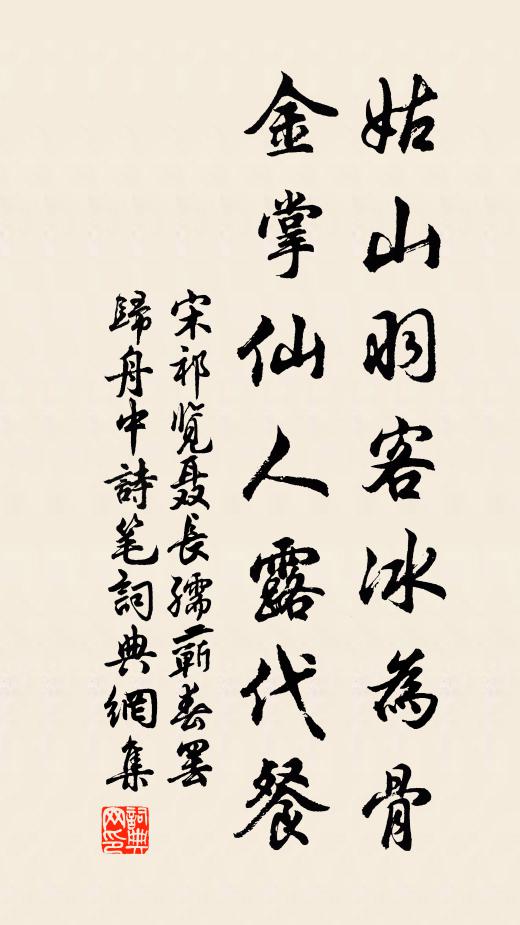 姑山羽客冰為骨
金掌仙人露代餐
宋祁覽聂長孺蕲春罢
歸舟中詩笔詞典網集
詞典
网印